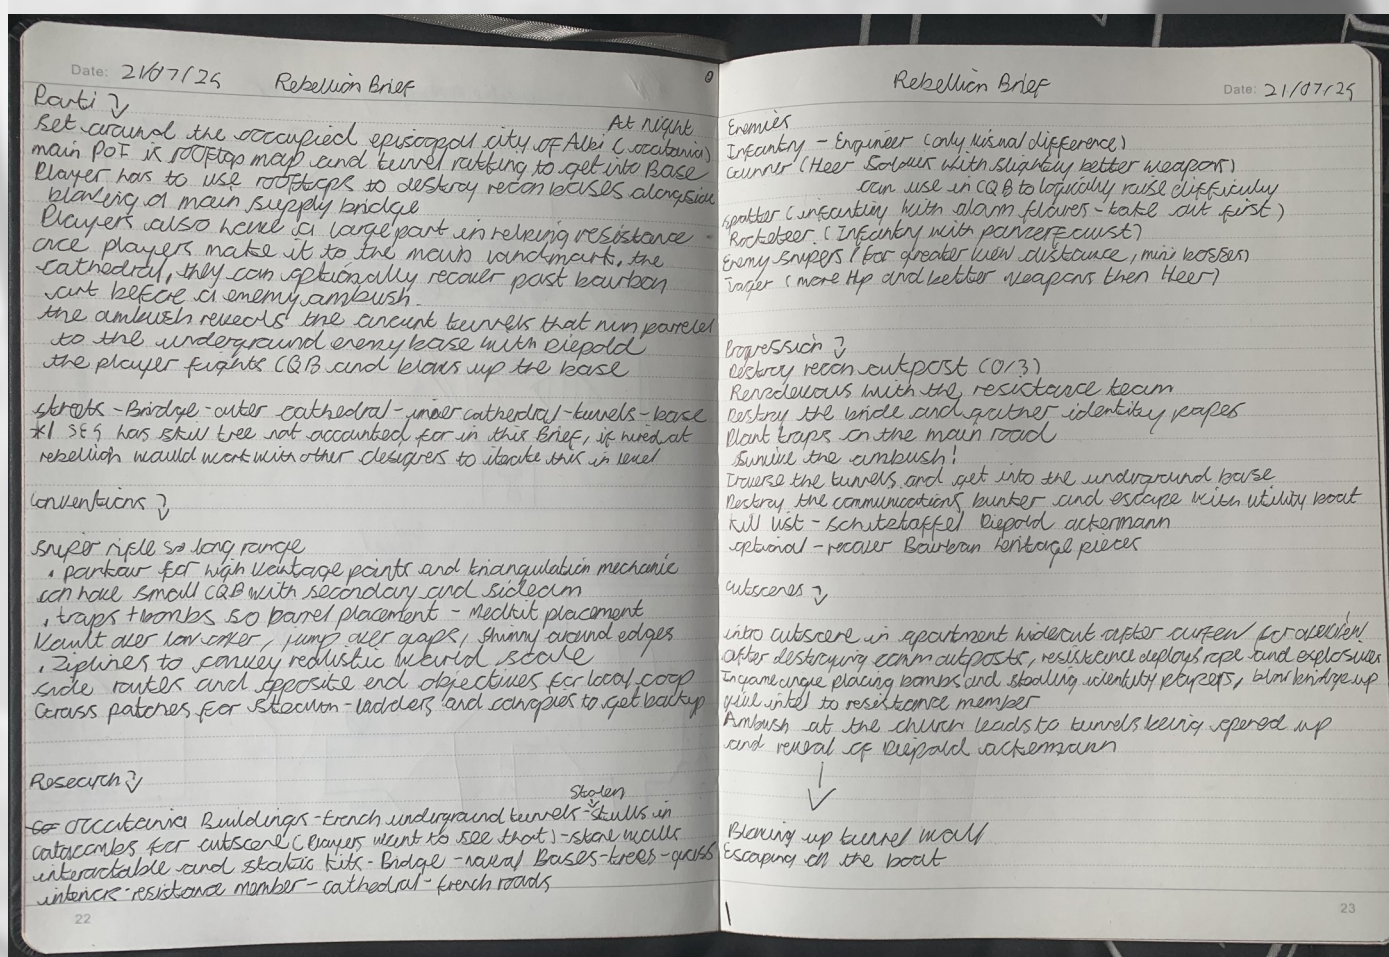 Date: 21/07/25 Rebellion Brief
Parti
At night
Set around the occupied episcopal city of Albi (occitania)
main PoI is rooftop map and tunnel ratting to get into Base
Player has to use rooftops to destroy recon bases alongside
blowing a main supply bridge
Players also have a large part in relying resistance -
once players make it to the main landmark, the
cathedral, they can optionally recover past bourbon
art before a enemy ambush.
the ambush reveals the ancient tunnels that run parrelel
to the underground enemy base with Diepold
the player fights CQB and blows up the base
streets - Bridge - outer cathedral - inner cathedral - tunnels - base
*1 SE5 has skill tree not accounted for in this Brief, if hired at
rebellion would work with other designers to iterate this in level
Conventions
sniper rifle so long range
. parkour for high vantage points and triangulation mechanic
can have small CQB with secondary and sidearm
. traps + bombs so barrel placement - Medkit placement
Vault over low cover, jump over gaps, shinny around edges
. Ziplines to convey realistic world scale
side routes and opposite end objectives for local coop
Grass patches for stealth - ladders and canopies to get back up
Research
Stolen
occatania Buildings - french underground tunnels - skulls in
catacombs for cutscene (Players want to see that) - stone walls
interactable and static kits - Bridge - naval Bases - trees - grass
interiors - resistance member - cathedral - french roads
22
Rebellion Brief Date: 21/07/25
Enemies
Infantry - Engineer (only visual difference)
Gunner (Heer Soldier with slightly better weapons)
can use in CQB to logically raise difficulty
spotter (infantry with alarm flares - take out first)
Rocketeer (Infantry with panzerfaust)
Enemy snipers (for greater view distance, mini bosses)
Jager (more Hp and better weapons then Heer)
Progression
Destroy recon outpost (0/3)
Rendezvous with the resistance team
Destroy the bride and gather identity papes
Plant traps on the main road
Survive the ambush!
Traverse the tunnels and get into the underground base
Destroy the communications bunker and escape with utility boat
Kill list - Schutzstaffel Diepold ackermann
optional - recover Bourbon heritage pieces
cutscenes
intro cutscene in apartment hideout after curfew for
after destroying comm outposts, resistance deploys rope and explosives
Ingame placing bombs and stealing identity, blow bridge up
give intel to resistance member
Ambush at the church leads to tunnels being opened up
and reveal of Diepold ackermann
Blowing up tunnel wall
Escaping on the boat
23